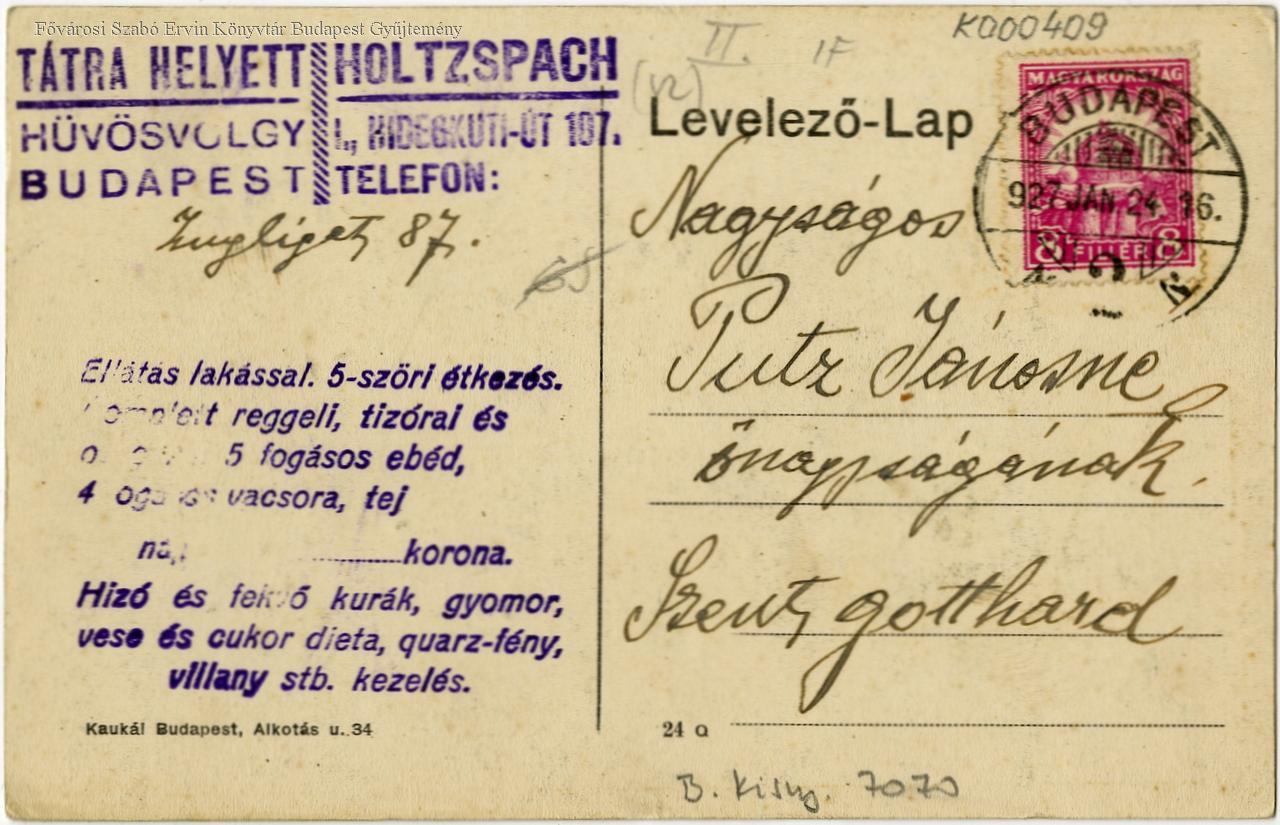 Fővárosi Szabó Ervin Könyvtár Budapest Gyűjtemény
K000409
II. 1F
(V2)
TÁTRA HELYETT HOLTZSPACH
HÜVÖSVÖLGY I., HIDEGKUTI-ÚT 107.
BUDAPEST TELEFON:
Zugliget, 87.
65
Levelező-Lap
MAGYARORSZÁG
BUDAPEST
927 JAN 24. 16.
8 FILLÉR 8
Nagyságos
Putz Jánosné
őnagyságának.
Szent, gotthard
Ellátás lakással. 5-szöri étkezés.
reggeli, tizórai és
5 fogásos ebéd,
4 vacsora, tej
korona.
Hizó és fekvő kurák, gyomor,
vese és cukor dieta, quarz-fény,
villany stb. kezelés.
Kaukál Budapest, Alkotás u. 34
24 Q
B. Kisny. 7070